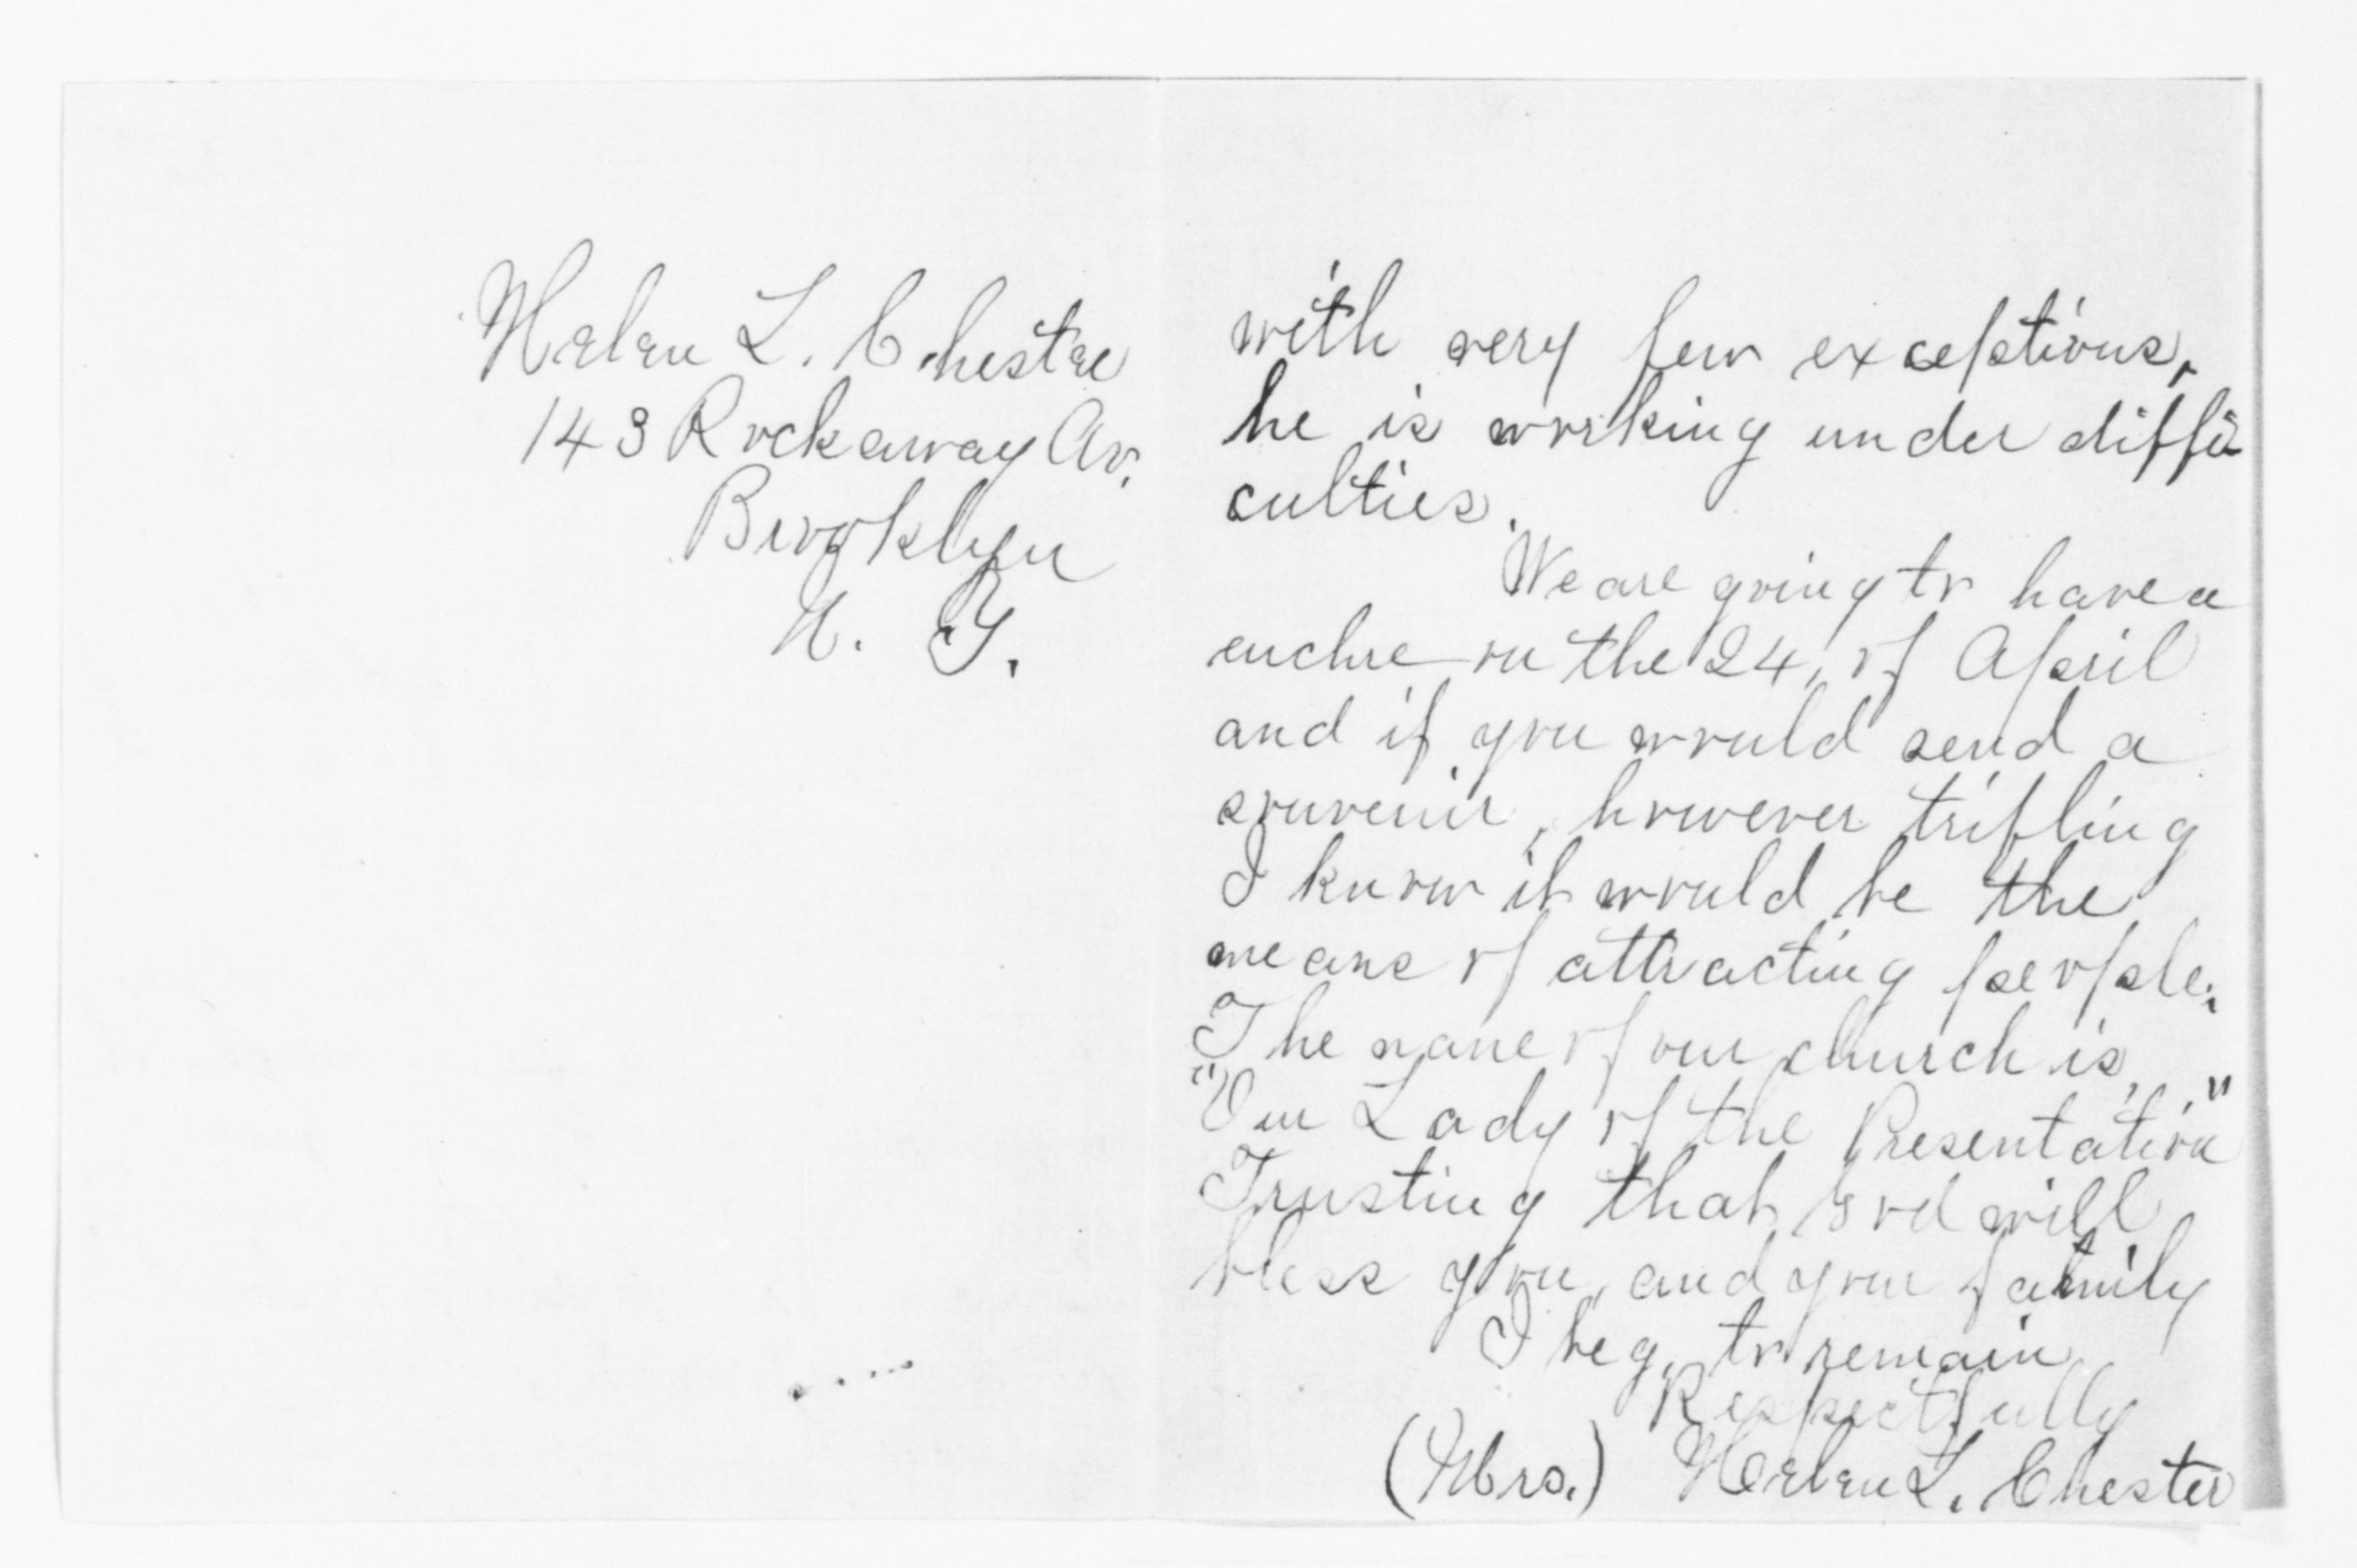 Helen L. Chester
143 Rockaway Av.
Brooklyn
N. Y.
with very few exceptions,
he is working under diffi
culties.
We are going to have a
euchre on the 24, of April
and if you would send a
souvenir, however trifling
I know it would be the
means of attracting people.
The name of our church is
"Our Lady of the Presentation"
Trusting that God will
bless you, and your family
I beg, to remain
Respectfully
(Mrs.) Helen L. Chester